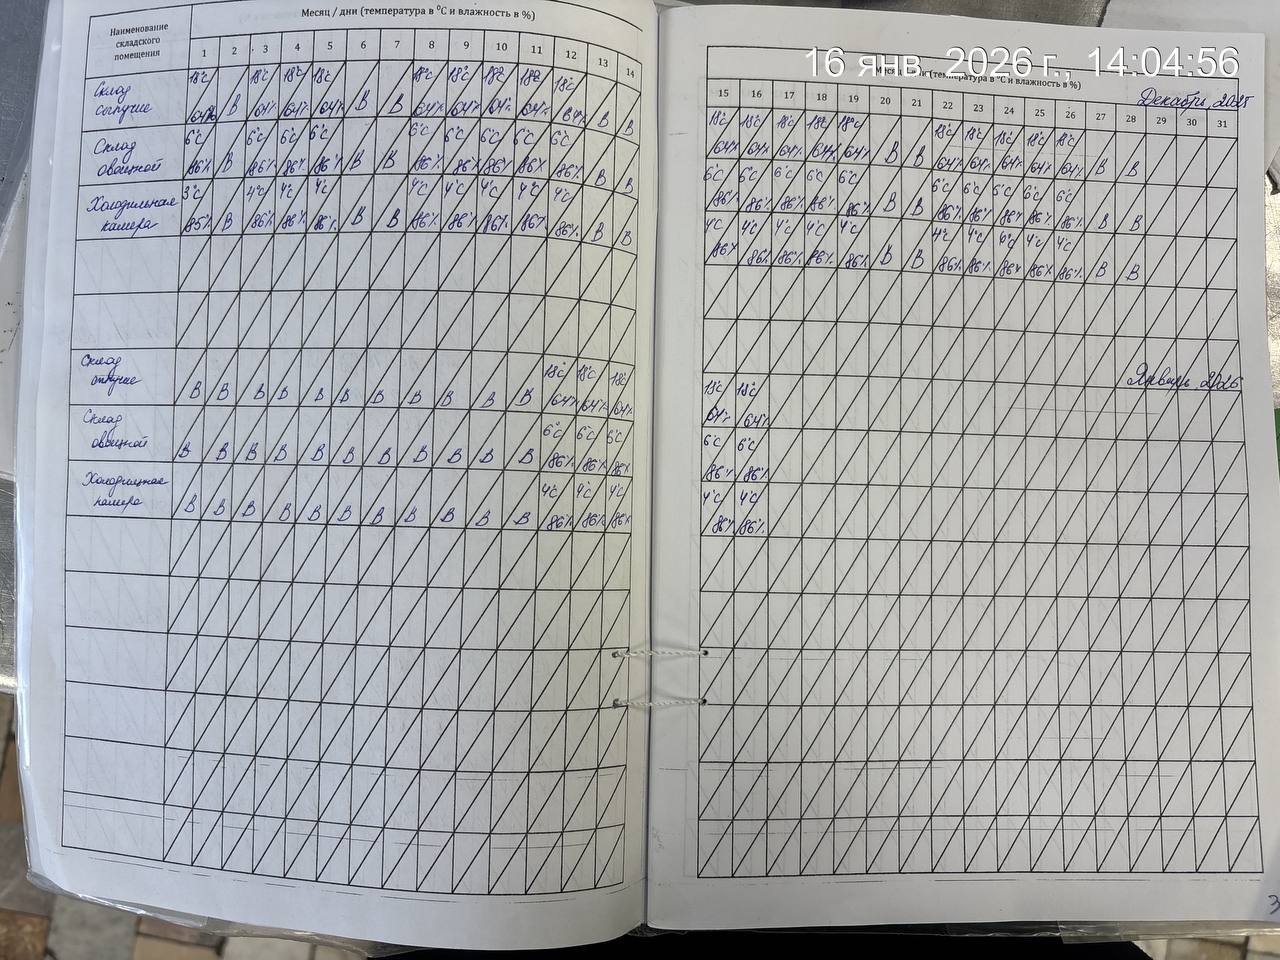 Наименование складского помещения
Месяц / дни (температура в °С и влажность в %)
1 2 3 4 5 6 7 8 9 10 11 12 13 14
Склад сыпучие
18°С 18°С 18°С 18°С 18°С 18°С 18°С 18°С 18°С
64% В 64% 64% 64% В В 64% 64% 64% 64% 64% В В
Склад овощной
6°С 6°С 6°С 6°С 6°С 6°С 6°С 6°С 6°С
86% В 86% 86% 86% В В 86% 86% 86% 86% 86% В В
Холодильная камера
3°С 4°С 4°С 4°С 4°С 4°С 4°С 4°С 4°С
85% В 86% 86% 86% В В 86% 86% 86% 86% 86% В В
Склад
18°С 18°С 18°С
В В В В В В В В В В В 64% 64% 64%
Склад овощной
6°С 6°С 6°С
В В В В В В В В В В В 86% 86% 86%
Холодильная камера
4°С 4°С 4°С
В В В В В В В В В В В 86% 86% 86%
16 янв. 2026 г., 14:04:56
(температура в °С и влажность в %)
Декабрь 2025
15 16 17 18 19 20 21 22 23 24 25 26 27 28 29 30 31
18°С 18°С 18°С 18°С 18°С 18°С 18°С 18°С 18°С 18°С
64% 64% 64% 64% 64% В В 64% 64% 64% 64% 64% В В
6°С 6°С 6°С 6°С 6°С 6°С 6°С 6°С 6°С 6°С
86% 86% 86% 86% 86% В В 86% 86% 86% 86% 86% В В
4°С 4°С 4°С 4°С 4°С 4°С 4°С 6°С 4°С 4°С
86% 86% 86% 86% 86% В В 86% 86% 86% 86% 86% В В
Январь 2026
18°С 18°С
64% 64%
6°С 6°С
86% 86%
4°С 4°С
86% 86%
3